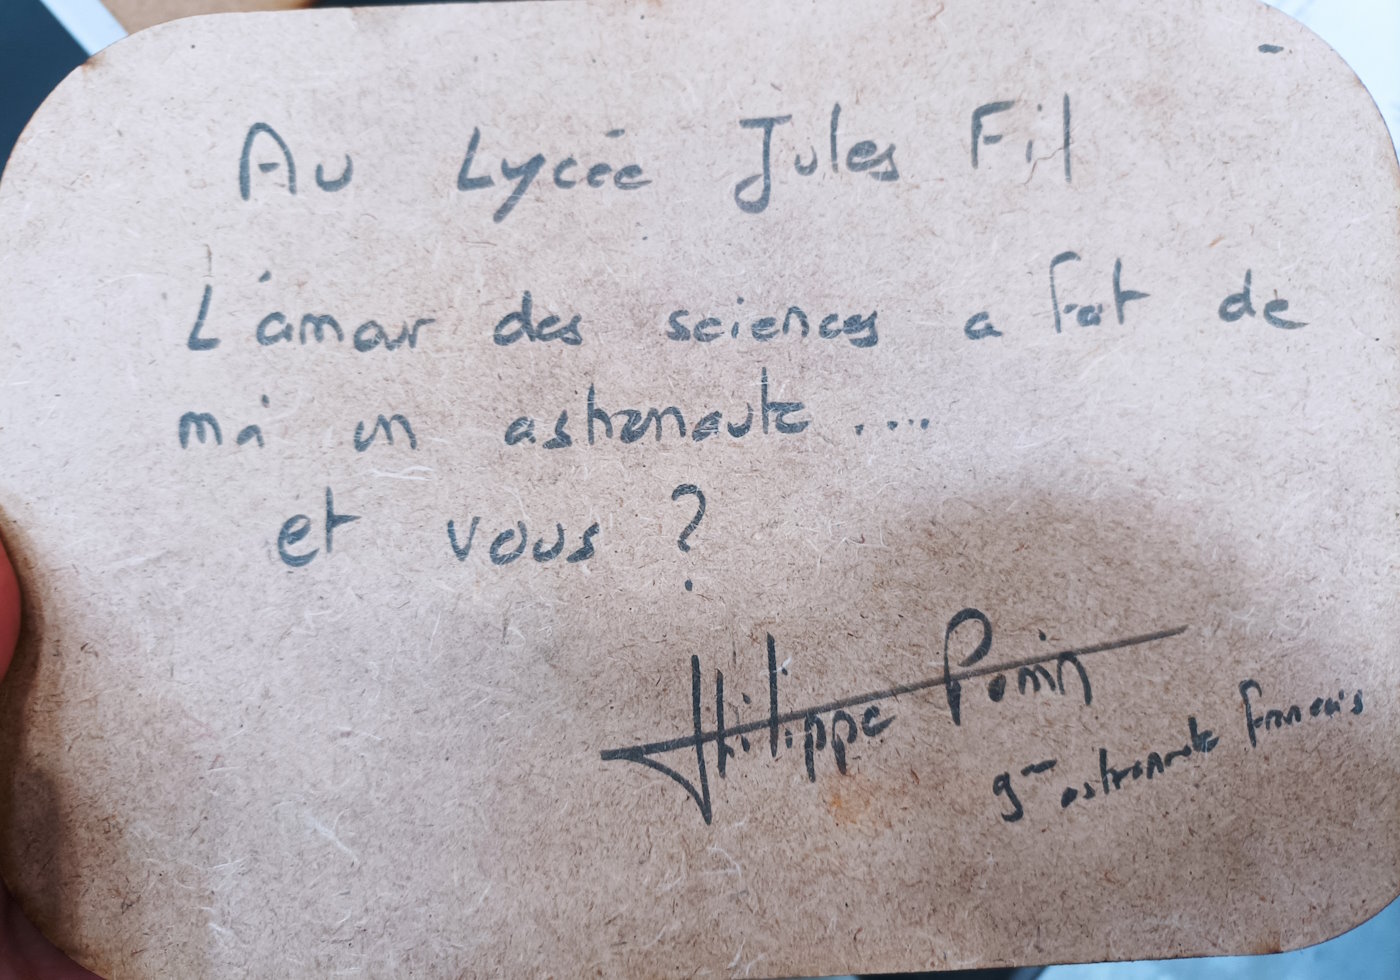 Au Lycée Jules Fil
L'amour des sciences a fait de
moi un astronaute ....
et vous ?
Philippe Perrin
9ème astronaute français